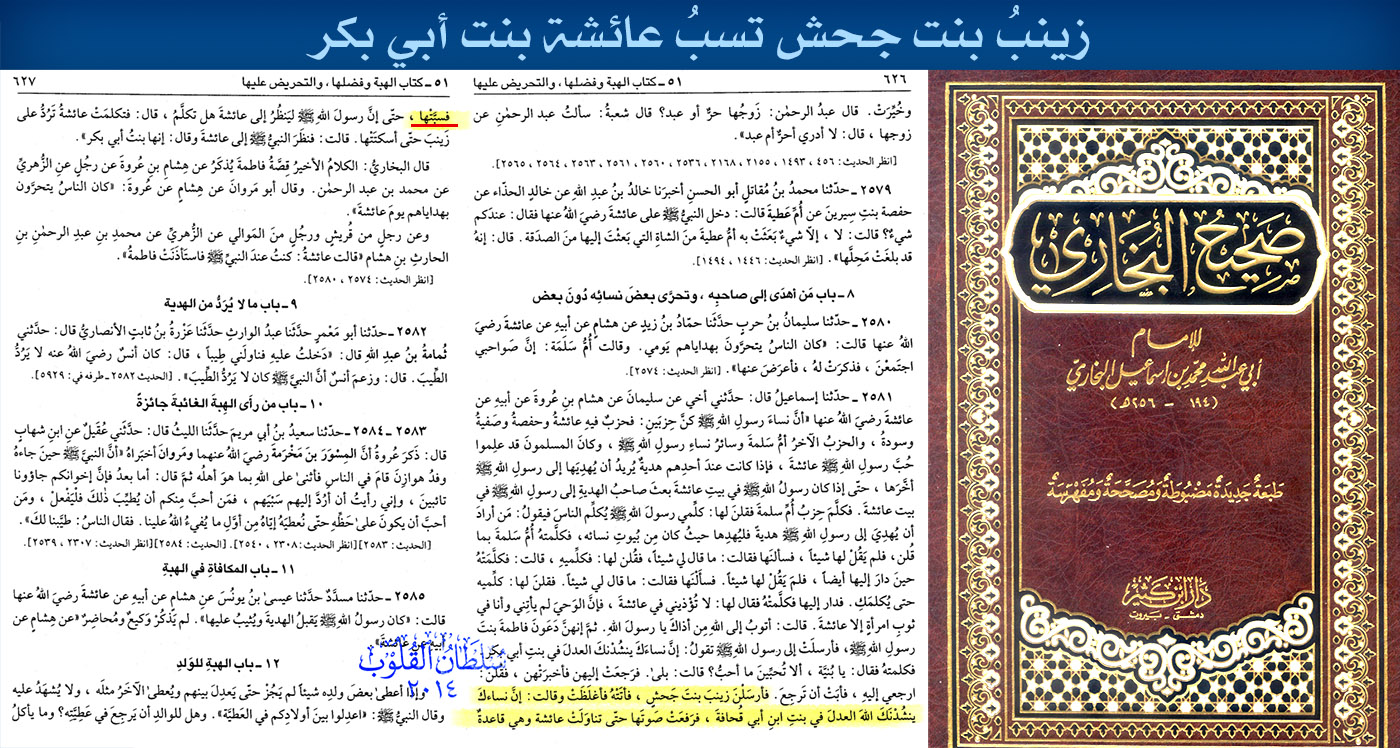 زينبُ بنت جحش تسبُ عائشة بنت أبي بكر
صَحِيحُ البُخَارِي
للإمام
أبي عبد الله محمد بن إسماعيل البخاري
(١٩٤ - ٢٥٦هـ)
طبعة جديدة مضبوطة ومصححة ومفهرسة
دار ابن كثير
دمشق - بيروت
٦٢٦
٥١ - كتاب الهبة وفضلها، والتحريض عليها
وخُيِّرَتْ. قال عبدُ الرحمٰن: زَوجُها حرٌّ أو عبد؟ قال شعبةُ: سألتُ عبد الرحمٰنِ عن
زوجها، قال: لا أدري أحرٌّ أم عبد».
[انظر الحديث: ٤٥٦، ١٤٩٣، ٢١٥٥، ٢١٦٨، ٢٥٣٦، ٢٥٦٠، ٢٥٦١، ٢٥٦٣، ٢٥٦٤، ٢٥٦٥].
٢٥٧٩ - حدّثنا محمدُ بنُ مُقاتلٍ أبو الحسنِ أخبرَنا خالدُ بنُ عبدِ اللهِ عن خالدٍ الحذّاء عن
حفصة بنتِ سِيرينَ عن أُمِّ عَطيةَ قالت: دخل النبيُّ ﷺ على عائشةَ رضيَ اللهُ عنها فقال: عندَكم
شيءٌ؟ قالت: لا، إلاّ شيءٌ بَعَثَتْ به أمُّ عطيةَ منَ الشاةِ التي بَعثْتَ إليها منَ الصدَقة. قال: إنهُ
قد بلغَتْ مَحِلَّها». [انظر الحديث: ١٤٤٦، ١٤٩٤].
٨ - باب مَن أهدَى إلى صاحبِه، وتحرَّى بعضَ نسائه دُونَ بعض
٢٥٨٠ - حدّثنا سليمانُ بنُ حربٍ حدَّثَنا حمّادُ بنُ زيدٍ عن هشامٍ عن أبيهِ عن عائشةَ رضيَ
اللهُ عنها قالت: «كان الناسُ يتحرَّونَ بهداياهم يَومي. وقالت أُمُّ سَلَمةَ: إنَّ صَواحبي
اجتمَعْنَ، فذكرَتْ لهُ، فأعرَضَ عنها». [انظر الحديث: ٢٥٧٤].
٢٥٨١ - حدّثنا إسماعيلُ قال: حدَّثَني أخي عن سليمانَ عن هشامِ بنِ عُروةَ عن أبيهِ عن
عائشةَ رضيَ اللهُ عنها «أنَّ نساءَ رسولِ اللهِ ﷺ كنَّ حِزبَينِ: فحزبٌ فيهِ عائشةُ وحفصةُ وصفيةُ
وسودةُ، والحزبُ الآخَرُ أمُّ سَلمةَ وسائرُ نساءِ رسولِ اللهِ ﷺ، وكانَ المسلمونَ قد علِموا
حُبَّ رسولِ اللهِ ﷺ عائشةَ، فإذا كانت عندَ أحدِهم هديةٌ يُريدُ أن يُهدِيَها إلى رسولِ اللهِ ﷺ
أخَّرَها، حتّى إذا كان رسولُ اللهِ ﷺ في بيتِ عائشةَ بعثَ صاحبُ الهديةِ إلى رسولِ اللهِ ﷺ في
بيت عائشةَ. فكلَّمَ حِزبُ أُمِّ سلمةَ فقلنَ لها: كلِّمي رسولَ اللهِ ﷺ يُكلِّم الناسَ فيقولُ: مَن أرادَ
أن يُهدِيَ إلى رسولِ اللهِ ﷺ هديةً فليُهدِها حيثُ كان مِن بُيوتِ نسائه، فكلَّمتهُ أمُّ سلمةَ بما
قُلن، فلم يَقُلْ لها شيئاً، فسألنَها فقالت: ما قال لي شيئاً، فقُلن لها: فكلِّميهِ، قالت: فكلَّمَتْهُ
حين دارَ إليها أيضاً، فلم يَقُلْ لها شيئاً. فسألْنَها فقالت: ما قال لي شيئاً. فقلنَ لها: كلِّميه
حتى يُكلمَكِ. فدار إليها فكلَّمتْهُ فقال لها: لا تُؤذيني في عائشةَ، فإنَّ الوَحيَ لم يأتِني وأنا في
ثوبِ امرأةٍ إلا عائشةَ. قالت: أتوبُ إلى اللهِ مِن أذاكَ يا رسولَ اللهِ. ثمَّ إنهنَّ دَعَونَ فاطمةَ بنتَ
رسولِ اللهِ ﷺ، فأرسلَتْ إلى رسولِ اللهِ ﷺ تقولُ: إنَّ نساءَكَ يَنشُدْنَكَ العدلَ في بنتِ أبي بكر.
فكلمتهُ فقال: يا بُنَيَّة، ألا تُحبِّينَ ما أُحبُّ؟ قالت: بلى. فرَجعَتْ إليهنَّ فأخبرَتْهنَّ، فقلنَ:
ارجعي إليه، فأبَتْ أن تَرجعَ. فأرسَلْنَ زينبَ بنتَ جَحشٍ، فأتتْهُ فأغلَظَتْ وقالت: إنَّ نساءَكَ
ينشُدْنَكَ اللهَ العدلَ في بنتِ ابنِ أبي قُحافةَ، فرفعَتْ صَوتَها حتّى تناوَلَتْ عائشةَ وهي قاعدةٌ
٥١ - كتاب الهبة وفضلها، والتحريض عليها
٦٢٧
فسبَّتْها، حتّى إنَّ رسولَ اللهِ ﷺ ليَنظُرُ إلى عائشةَ هل تكلَّمُ، قال: فتكلمَتْ عائشةُ تَرُدُّ على
زَينبَ حتّى أسكتَتْها. قالت: فنظَرَ النبيُّ ﷺ إلى عائشةَ وقال: إنها بنتُ أبي بكر».
قال البخاريُّ: الكلامُ الأخيرُ قِصَّةُ فاطمةَ يُذكَرُ عن هشامِ بنِ عُروةَ عن رجلٍ عنِ الزُّهريِّ
عن محمد بن عبد الرحمٰن. وقال أبو مَروانَ عن هشامٍ عن عُروةَ: «كان الناسُ يتحرَّون
بهداياهم يومَ عائشةَ».
وعن رجلٍ من قُريشٍ ورجُلٍ منَ المَوالي عنِ الزُّهريِّ عن محمدِ بنِ عبدِ الرحمٰنِ بنِ
الحارثِ بنِ هشام «قالت عائشةُ: كنتُ عندَ النبيِّ ﷺ فاستأذَنَتْ فاطمةُ».
[انظر الحديث: ٢٥٧٤، ٢٥٨٠].
٩ - باب ما لا يُرَدُّ من الهدية
٢٥٨٢ - حدّثنا أبو مَعْمرٍ حدَّثَنا عبدُ الوارثِ حدَّثَنا عَزْرةُ بنُ ثابتٍ الأنصاريُّ قال: حدَّثني
ثُمامةُ بنُ عبدِ اللهِ قال: «دَخلتُ عليهِ فناولَني طِيباً، قال: كان أنسٌ رضيَ اللهُ عنه لا يَرُدُّ
الطِّيبَ. قال: وزعمَ أنسٌ أنَّ النبيَّ ﷺ كان لا يَرُدُّ الطِّيبَ». [الحديث ٢٥٨٢ - طرفه في: ٥٩٢٩].
١٠ - باب من رأى الهبةَ الغائبةَ جائزةً
٢٥٨٣، ٢٥٨٤ - حدّثنا سعيدُ بنُ أبي مريمَ حدَّثَنا الليثُ قال: حدَّثَني عُقَيلٌ عنِ ابنِ شهابٍ
قال: ذكرَ عُروةُ أنَّ المِسْوَرَ بنَ مَخْرَمةَ رضيَ اللهُ عنهما ومَروانَ أخبَراهُ «أنَّ النبيَّ ﷺ حينَ جاءهُ
وفدُ هوازِنَ قامَ في الناسِ فأثنىٰ على اللهِ بما هوَ أهلُه ثمَّ قال: أما بعدُ فإنَّ إخوانَكم جاؤونا
تائبينَ، وإني رأيتُ أن أرُدَّ إليهم سَبْيَهم، فمَن أحبَّ منكم أن يُطيِّبَ ذلكَ فلْيَفعَلْ، ومَن
أحبَّ أن يكونَ علىٰ حَظِّهِ حتّى نُعطيَهُ إيّاهُ مِن أوَّلِ ما يُفيءُ اللهُ علينا. فقال الناسُ: طيَّبنا لكَ».
[الحديث: ٢٥٨٣][انظر الحديث: ٢٣٠٨، ٢٥٤٠]. [الحديث: ٢٥٨٤][انظر الحديث: ٢٣٠٧، ٢٥٣٩].
١١ - باب المكافأةِ في الهبةِ
٢٥٨٥ - حدّثنا مسدَّدٌ حدَّثَنا عيسىٰ بنُ يونُسَ عن هشامٍ عن أبيهِ عن عائشةَ رضيَ اللهُ عنها
قالت: «كان رسولُ اللهِ ﷺ يَقبَلُ الهديةَ ويُثيبُ عليها». لم يَذكُرْ وَكيعٌ ومُحاضِرٌ «عن هِشامٍ عن
أبيهِ عن عائشةَ».
سلطان القلوب
٢٠١٤
١٢ - باب الهبةِ للولَدِ
وإذا أعطى بعضَ ولدِه شيئاً لم يَجُزْ حتّى يَعدِلَ بينهم ويُعطيَ الآخَرُ مثلَه، ولا يُشهَدُ عليه
وقال النبيُّ ﷺ: «اعدِلوا بينَ أولادِكم في العَطيَّة». وهل للوالدِ أن يَرجِعَ في عَطيَّتِه؟ وما يأكلُ